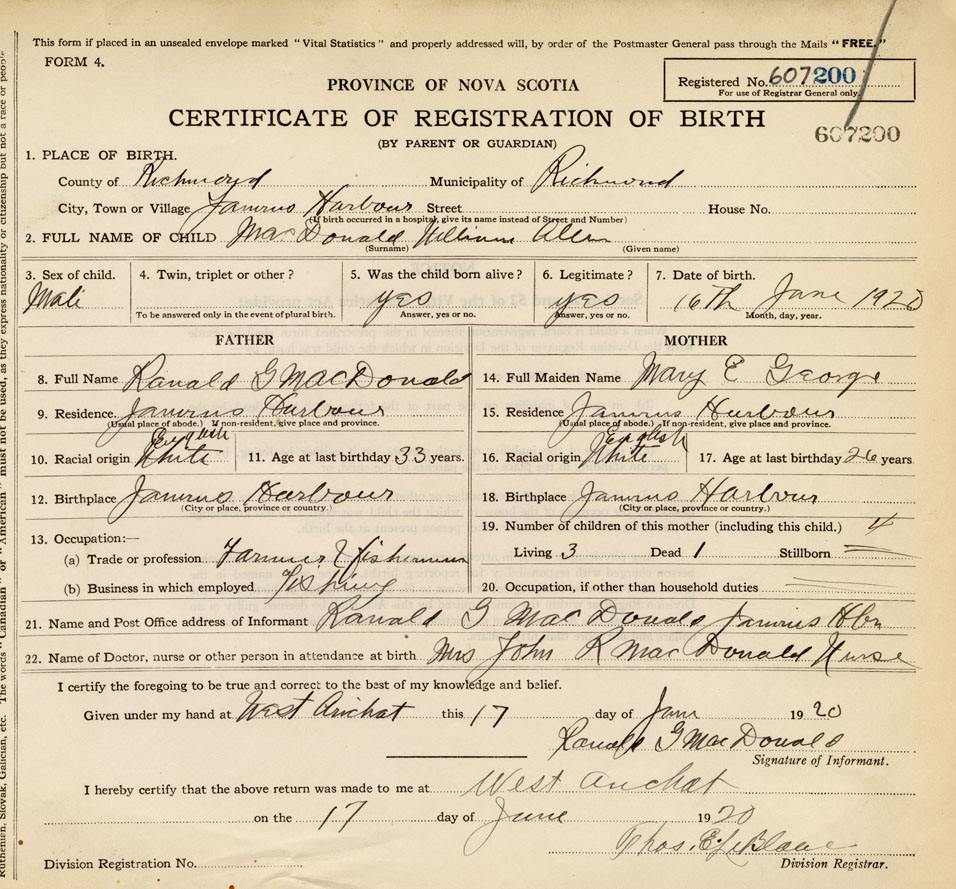 This form if placed in an unsealed envelope marked "Vital Statistics" and properly addressed will, by order of the Postmaster General pass through the Mails "FREE."
FORM 4.
Registered No. 607200
For use of Registrar General only.
PROVINCE OF NOVA SCOTIA
CERTIFICATE OF REGISTRATION OF BIRTH
607200
(BY PARENT OR GUARDIAN)
1. PLACE OF BIRTH.
County of Richmond Municipality of Richmond
City, Town or Village Harbour Street House No.
(If birth occurred in a hospital, give its name instead of Street and Number)
2. FULL NAME OF CHILD MacDonald William Allen
(Surname) (Given name)
3. Sex of child. 4. Twin, triplet or other? 5. Was the child born alive? 6. Legitimate? 7. Date of birth.
Male yes yes 16Th June 1920
To be answered only in the event of plural birth. Answer, yes or no. Answer, yes or no. Month, day, year.
FATHER
8. Full Name Ranald G MacDonald
9. Residence Harbour
(Usual place of abode.) If non-resident, give place and province.
English
10. Racial origin White 11. Age at last birthday 33 years.
12. Birthplace Harbour
(City or place, province or country.)
13. Occupation:—
(a) Trade or profession Farmer & fisherman
(b) Business in which employed Fishing
MOTHER
14. Full Maiden Name Mary E George
15. Residence Harbour
(Usual place of abode.) If non-resident, give place and province.
English
16. Racial origin White 17. Age at last birthday 26 years
18. Birthplace Harbour
(City or place, province or country.)
19. Number of children of this mother (including this child.) 4
Living 3 Dead 1 Stillborn
20. Occupation, if other than household duties
21. Name and Post Office address of Informant Ranald G MacDonald Hbr
22. Name of Doctor, nurse or other person in attendance at birth Mrs John R MacDonald Nurse
I certify the foregoing to be true and correct to the best of my knowledge and belief.
Given under my hand at West Arichat this 17 day of June 1920
Ranald G MacDonald
Signature of Informant.
I hereby certify that the above return was made to me at West Arichat
on the 17 day of June 1920
Thos. E. LeBlanc
Division Registration No. Division Registrar.
Ruthenian, Slovak, Galician, etc. The words "Canadian" or "American" must not be used, as they express nationality or citizenship but not a race or people